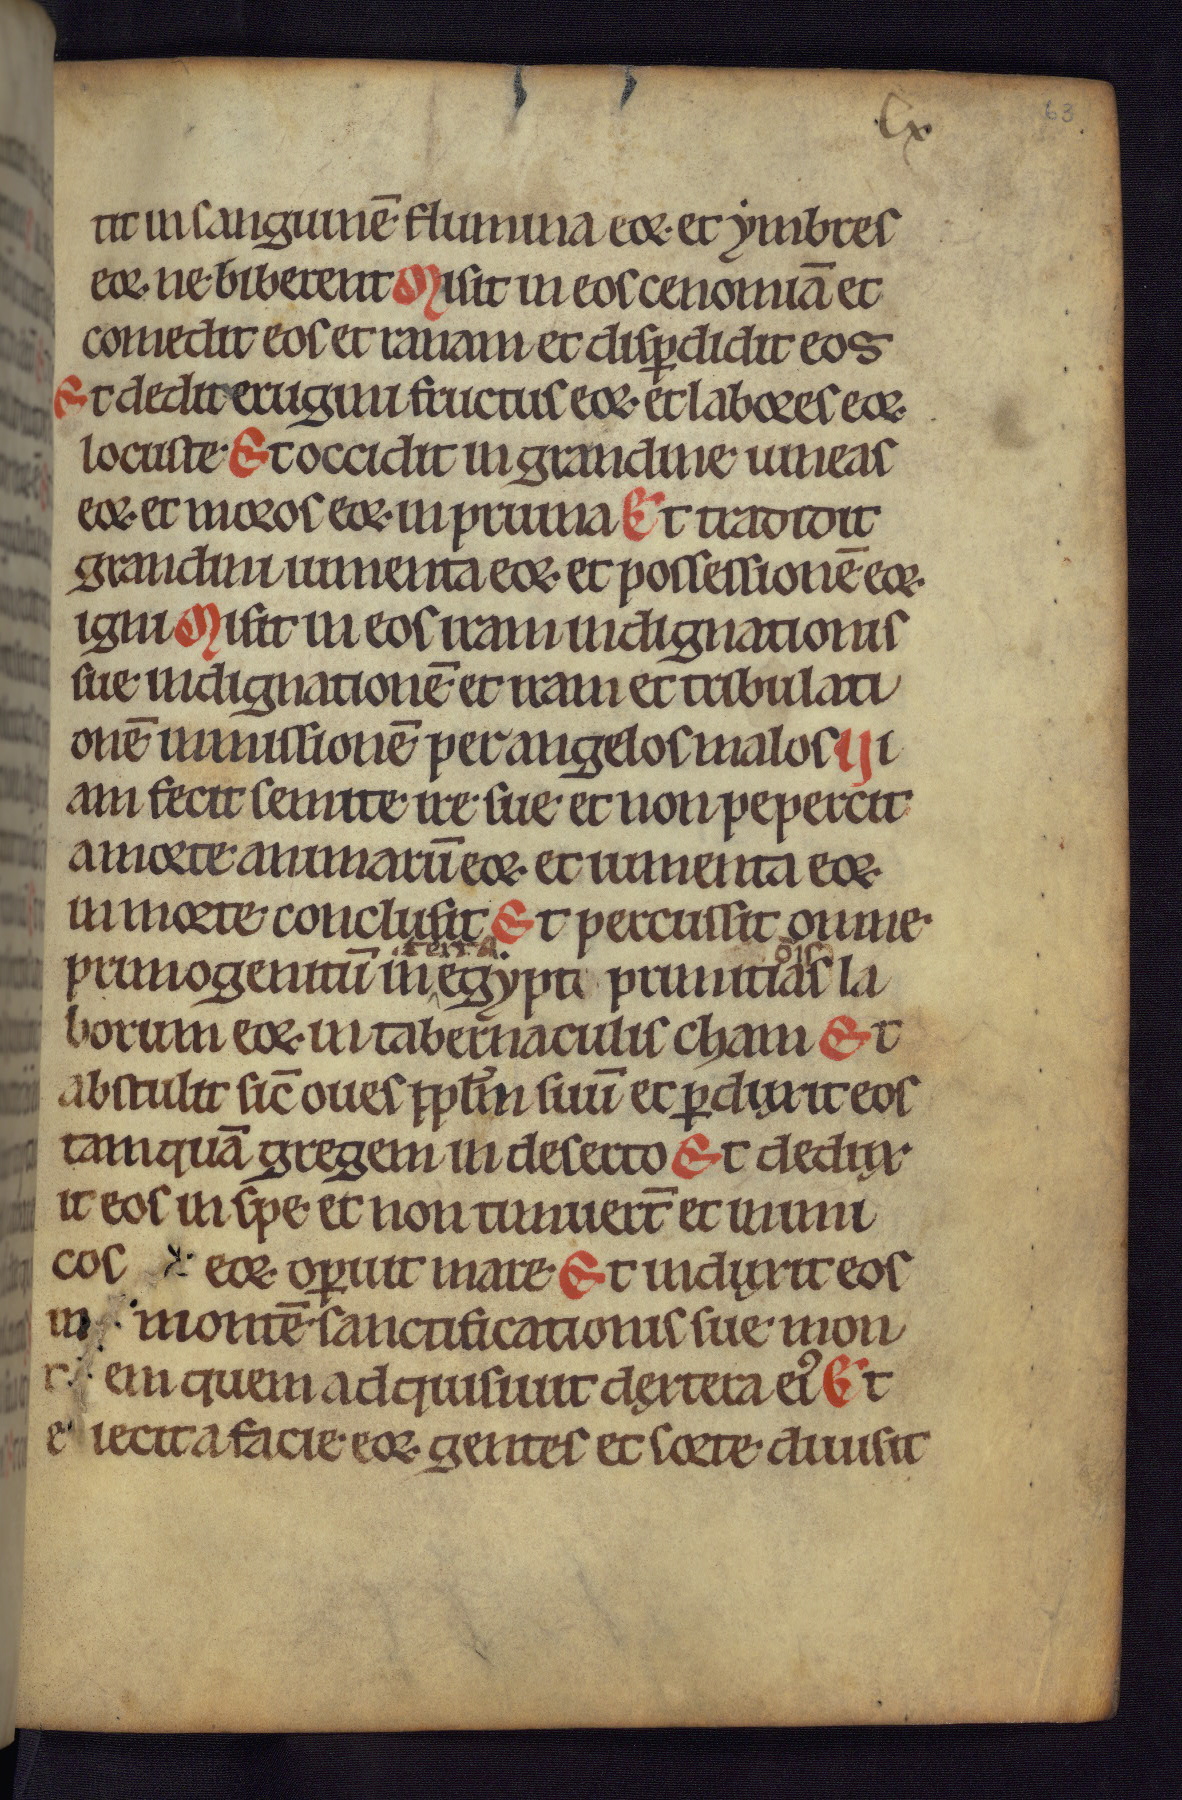 .lx.
63
tit in sanguinē flumina eoꝝ. et ẏmbres
eoꝝ. ne biberent Misit in eos cenomiā et
comedit eos et ranam et disꝑdidit eos
Et dedit erugini fructus eoꝝ. et labores eoꝝ.
locuste. Et occidit in grandine uineas
eoꝝ. et moros eoꝝ. in pruina Et tradidit
grandini iumenta eoꝝ. et possessionē eoꝝ.
igni Misit in eos iram indignationis
sue indignationē et iram et tribulati
onē inmissionē per angelos malos Ui
am fecit semite ire sue et non pepercit
a morte animarū eoꝝ. et iumenta eoꝝ.
in morte conclusit Et percussit omne
.terra. oīs
primogenitū in egẏpti primitias la
borum eoꝝ. in tabernaculis cham Et
abstulit sic̄ oues ppl̄m suū et ꝑduxit eos
tamquā gregem in deserto Et dedux
it eos in spe et non timuert̄ et inimi
cos eoꝝ. oꝑuit mare Et induxit eos
in montē sanctificationis sue mon
t em quem adquisiuit dextera eiꝰ Et
e iecit a facie eoꝝ. gentes et sorte diuisit